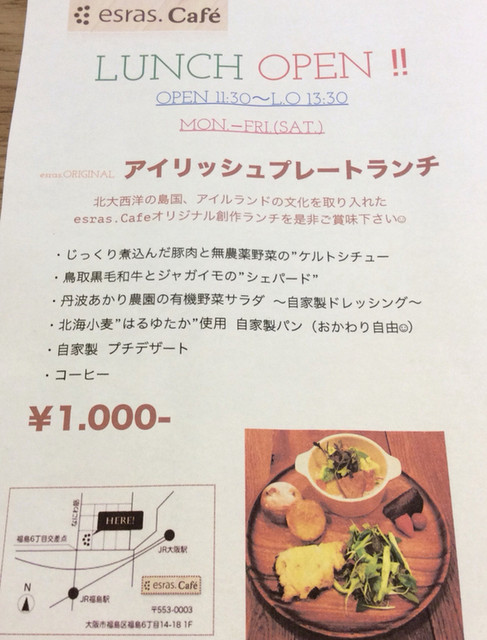 esras. Café
LUNCH OPEN !!
OPEN 11:30〜L.O 13:30
MON.–FRI.(SAT.)
esras.ORIGINAL アイリッシュプレートランチ
北大西洋の島国、アイルランドの文化を取り入れた
esras.Cafeオリジナル創作ランチを是非ご賞味下さい☺
・じっくり煮込んだ豚肉と無農薬野菜の”ケルトシチュー
・鳥取黒毛和牛とジャガイモの”シェパード”
・丹波あかり農園の有機野菜サラダ 〜自家製ドレッシング〜
・北海小麦”はるゆたか”使用 自家製パン（おかわり自由☺）
・自家製 プチデザート
・コーヒー
¥1.000-
なにわ筋
HERE!
福島6丁目交差点
JR大阪駅
N
esras. Café
JR福島駅
〒553-0003
大阪市福島区福島6丁目14-18 1F